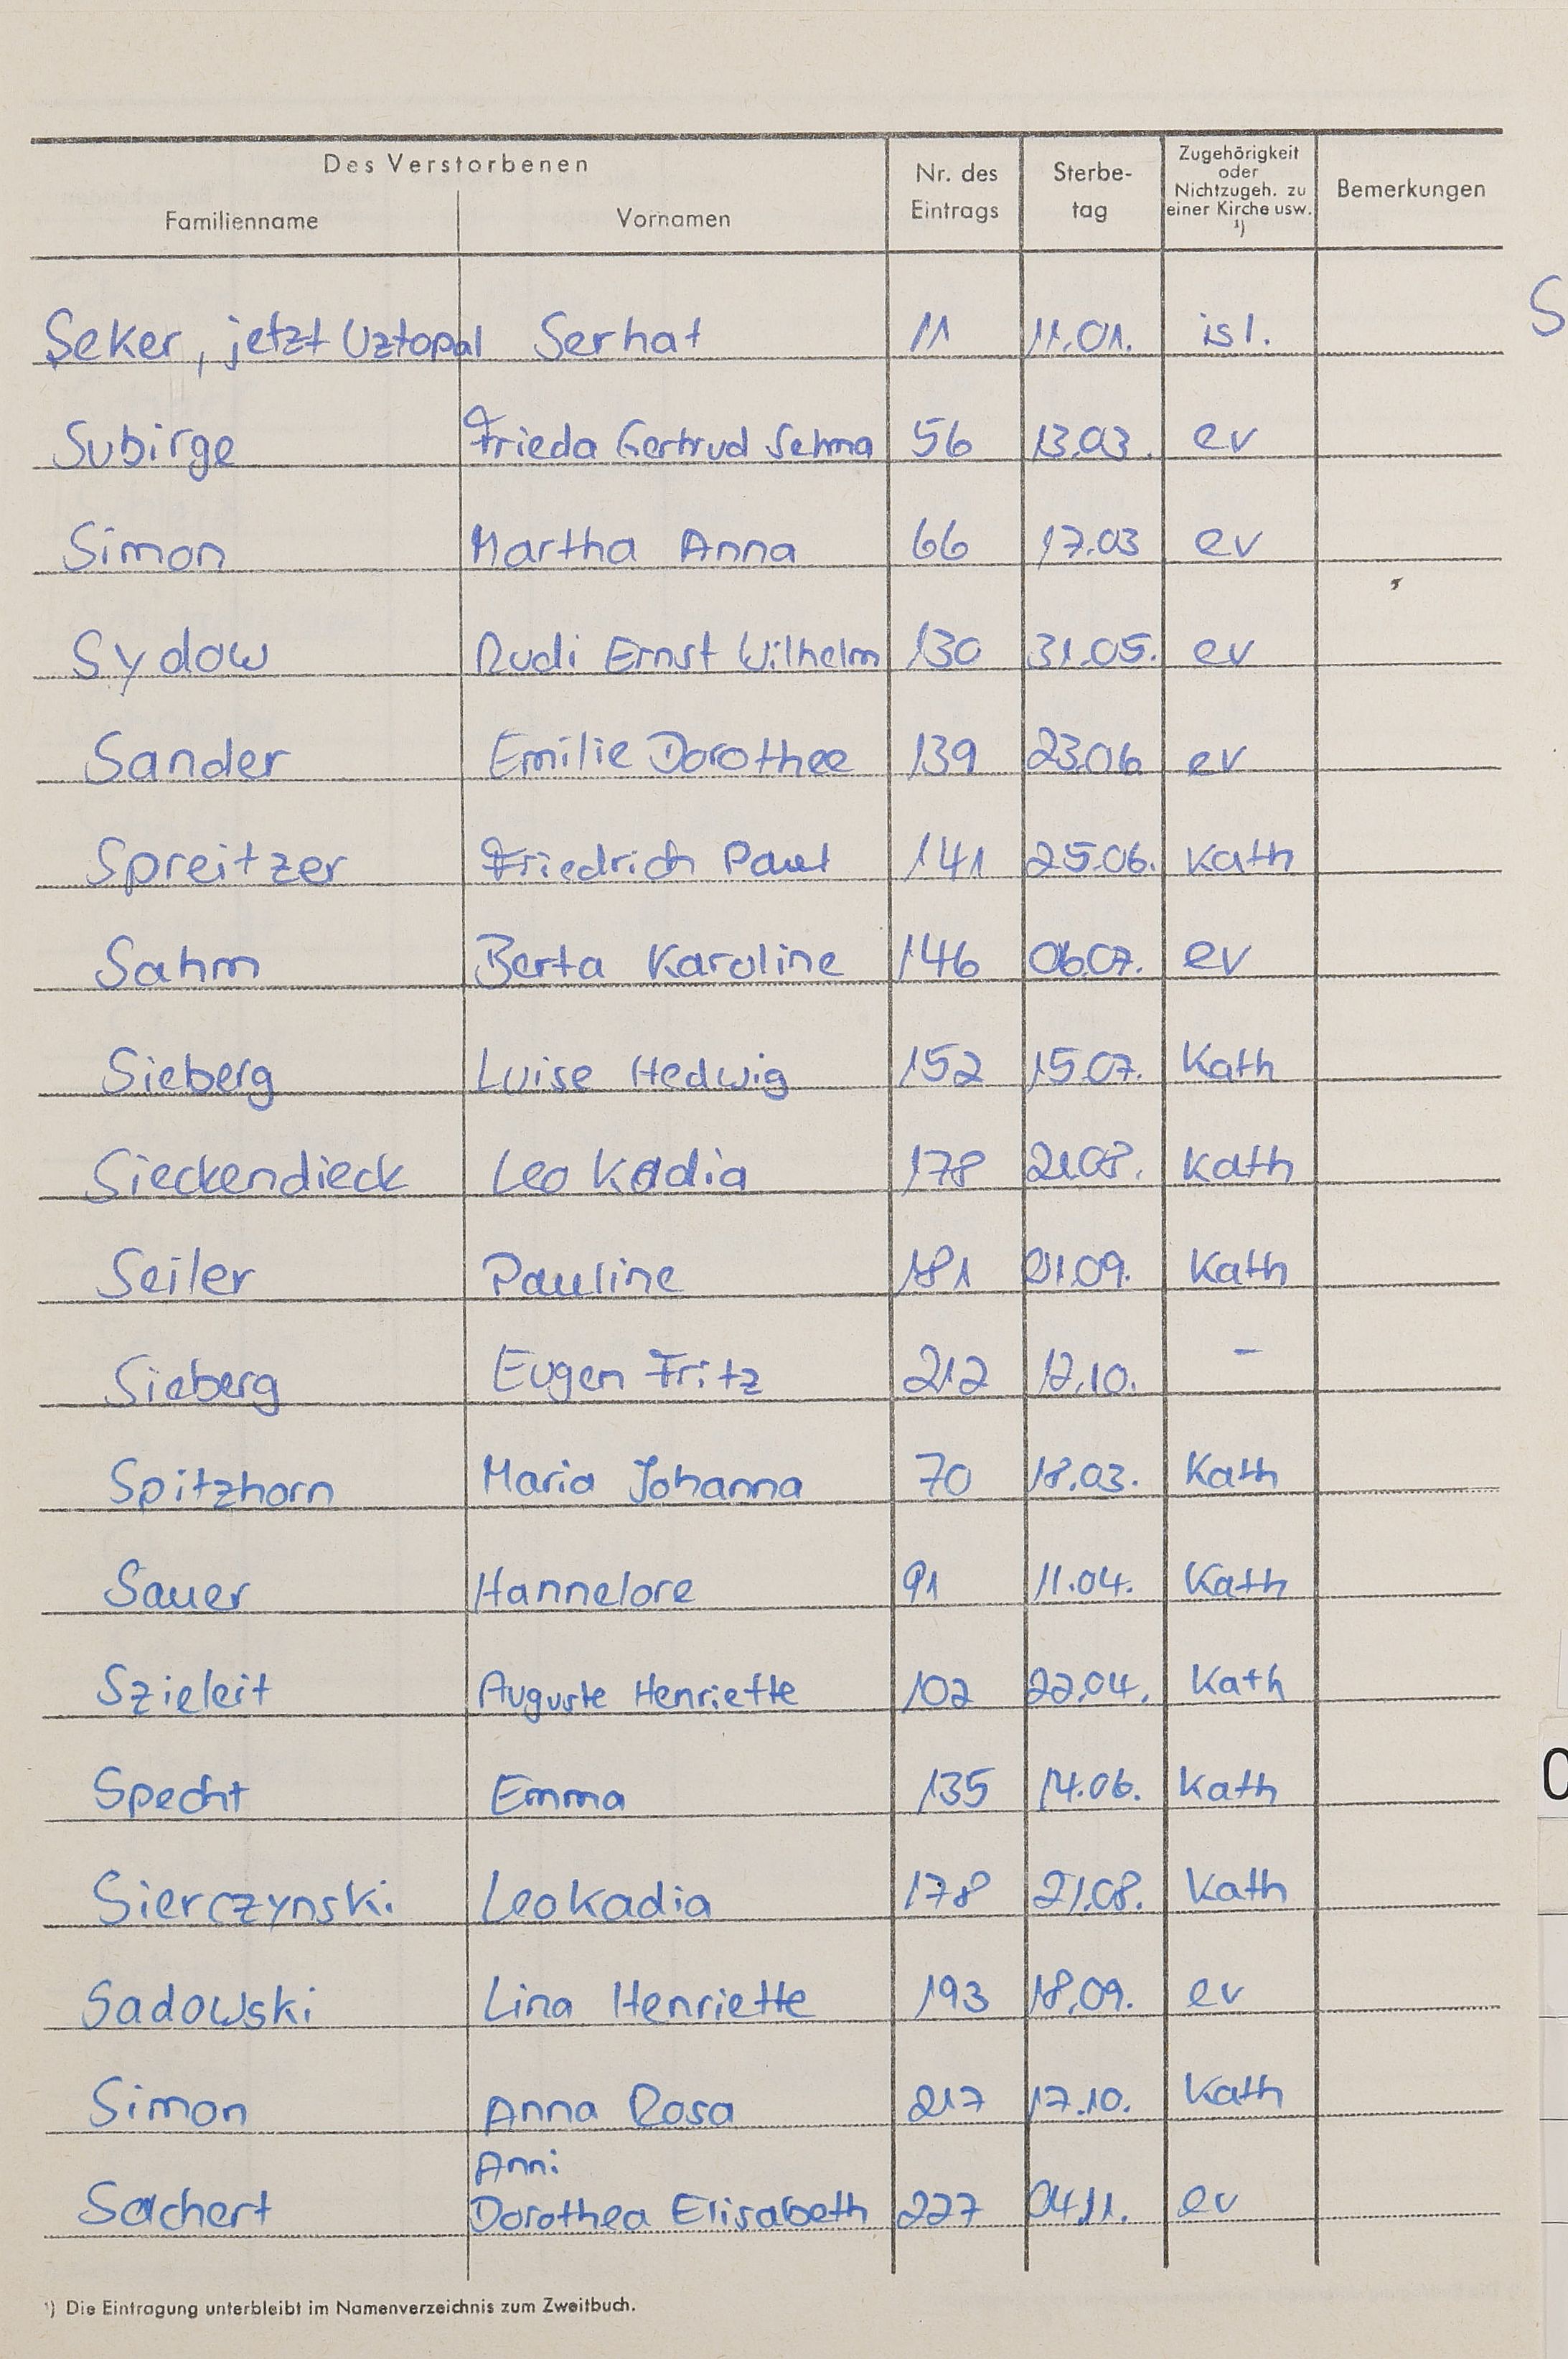 Des Verstorbenen
Familienname Vornamen Nr. des Eintrags Sterbe-tag Zugehörigkeit oder Nichtzugeh. zu einer Kirche usw. ¹) Bemerkungen
Şeker, jetzt Uztopal Serhat 11 11.01. isl.
Subirge Frieda Gertrud Selma 56 13.03. ev
Simon Martha Anna 66 17.03 ev
Sydow Rudi Ernst Wilhelm 130 31.05. ev
Sander Emilie Dorothee 139 23.06 ev
Spreitzer Friedrich Paul 141 25.06. Kath
Sahm Berta Karoline 146 06.07. ev
Sieberg Luise Hedwig 152 15.07. Kath
Sieckendieck Leokadia 178 21.08. Kath
Seiler Pauline 181 01.09. Kath
Sieberg Eugen Fritz 212 12.10. –
Spitzhorn Maria Johanna 70 18.03. Kath
Sauer Hannelore 91 11.04. Kath
Szieleit Auguste Henriette 102 22.04. Kath
Specht Emma 135 14.06. Kath
Sierczynski Leokadia 178 21.08. Kath
Sadowski Lina Henriette 193 18.09. ev
Simon Anna Rosa 217 17.10. Kath
Anni
Sachert Dorothea Elisabeth 227 04.11. ev
¹) Die Eintragung unterbleibt im Namenverzeichnis zum Zweitbuch.
S